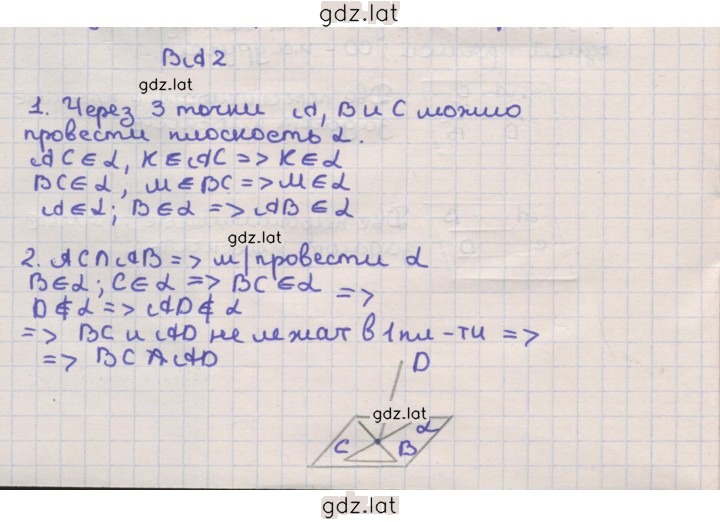 gdz.lat
В A 2
gdz.lat
1. Через 3 точки A, B и C можно
провести плоскость α.
AC ∈ α, K ∈ AC => K ∈ α
BC ∈ α, M ∈ BC => M ∈ α
A ∈ α; B ∈ α => AB ∈ α
gdz.lat
2. AC ∩ AB => м/провести α
B ∈ α; C ∈ α => BC ∈ α =>
D ∉ α => AD ∉ α
=> BC и AD не лежат в 1 пл-ти =>
=> BC ∩ AD
D
gdz.lat
α
C B
gdz.lat